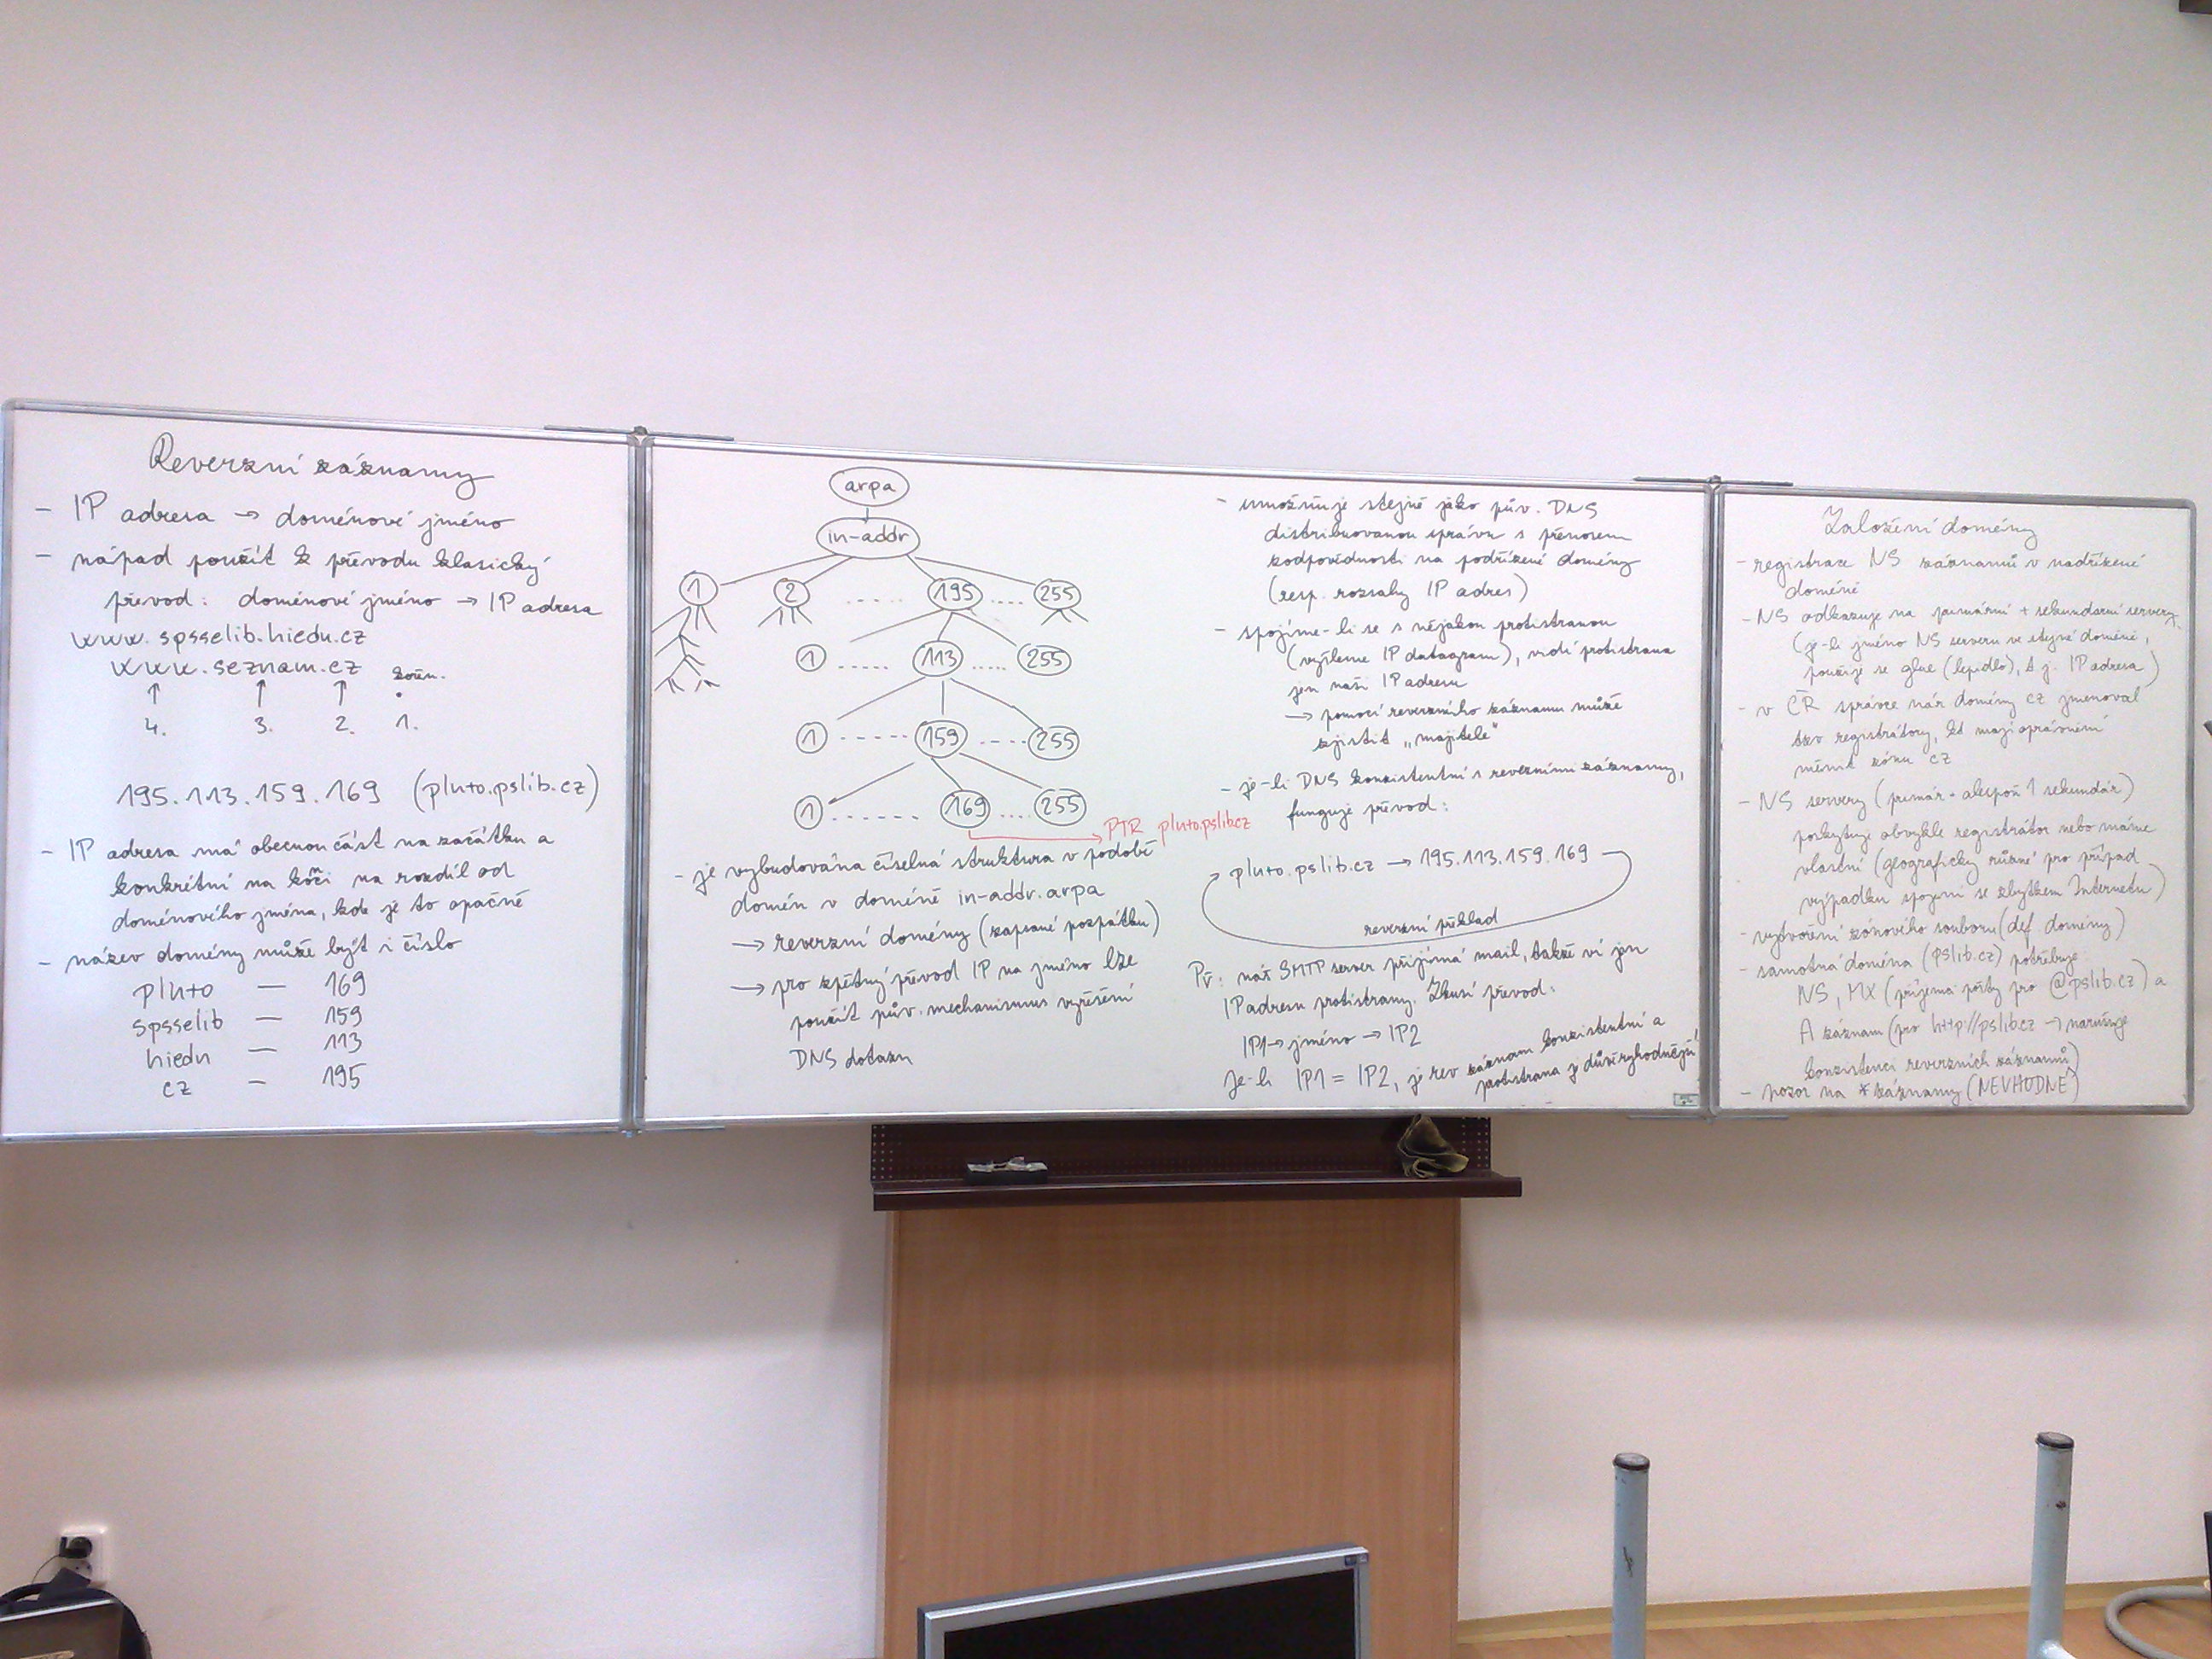 Reverzní záznamy
- IP adresa → doménové jméno
- nápad použít k převodu klasický
převod: doménové jméno → IP adresa
www.spsselib.hiedu.cz
www.seznam.cz kořen.
↑ ↑ ↑ .
4. 3. 2. 1.
195.113.159.169 (pluto.pslib.cz)
- IP adresa má obecnou část na začátku a
konkrétní na konci na rozdíl od
doménového jména, kde je to opačně
- název domény může být i číslo
pluto — 169
spsselib — 159
hiedu — 113
cz — 195
arpa
in-addr
1 2 ..... 195 .... 255
1 ..... 113 ..... 255
1 ------ 159 ----- 255
1 ------- 169 .... 255
PTR pluto.pslib.cz
- je vybudována číselná struktura v podobě
domén v doméně in-addr.arpa
→ reverzní domény (zapsané pozpátku)
→ pro zpětný převod IP na jméno lze
použít pův. mechanismus vyřešení
DNS dotazu
- umožňuje stejně jako pův. DNS
distribuovanou správu s přenosem
zodpovědnosti na podřízené domény
(resp. rozsahy IP adres)
- spojíme-li se s nějakou protistranou
(vyšleme IP datagram), vidí protistrana
jen naši IP adresu
→ pomocí reverzního záznamu může
zjistit „majitele"
- je-li DNS konzistentní s reverzními záznamy,
funguje převod:
pluto.pslib.cz → 195.113.159.169
reverzní překlad
Př: náš SMTP server přijímá mail, takže ví jen
IP adresu protistrany. Zkusí převod:
IP1 → jméno → IP2
Je-li IP1 = IP2, je rev záznam konzistentní a
protistrana je důvěryhodnější
Založení domény
- registrace NS záznamů v nadřízené
doméně
- NS odkazuje na primární + sekundární servery
(je-li jméno NS serveru ve stejné doméně,
použije se glue (lepidlo), t.j. IP adresa)
- v ČR správce nár domény cz jmenoval
tzv registrátory, kt mají oprávnění
měnit zónu cz
- NS servery (primár + alespoň 1 sekundár)
poskytuje obvykle registrátor nebo máme
vlastní (geograficky různé pro případ
výpadku spojení se zbytkem Internetu)
- vytvoření zónového souboru (def. domény)
- samotná doména (pslib.cz) potřebuje
NS, MX (příjem pošty pro @pslib.cz) a
A záznam (pro http://pslib.cz → narušuje
konzistenci reverzních záznamů)
- pozor na * záznamy (NEVHODNÉ)